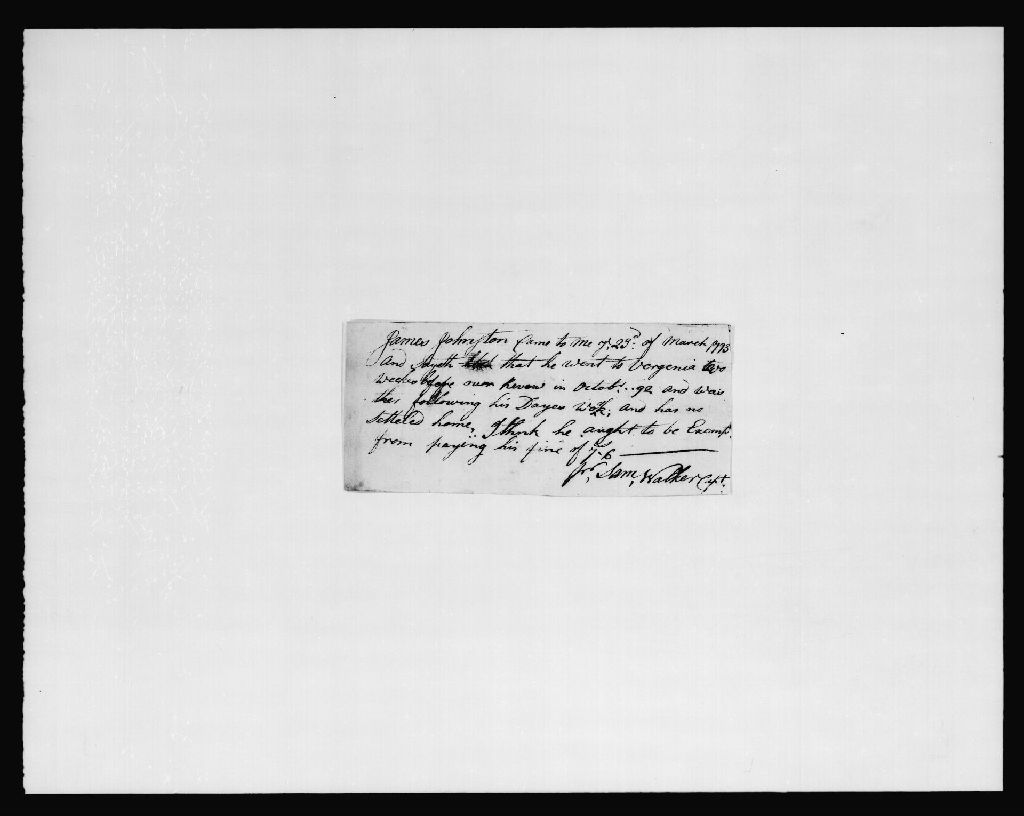 James Johnston Came to me ye 23d. of March 1793
And Sayeth that he went to Vergenia two
weeks before our Revew in Octobr. 92 and was
ther following his Dayes Work, and has no
setteled home, I think he aught to be Excempt.
from paying his fine of
Sam, Walker Capt.